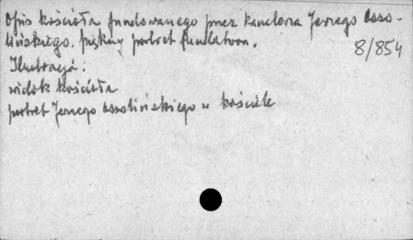 Opis kościoła fundowanego przez kanclerza Jerzego Osso-
lińskiego, piękny portret fundatora.
8/854
Ilustracja:
widok kościoła
portret Jerzego Ossolińskiego w kościele